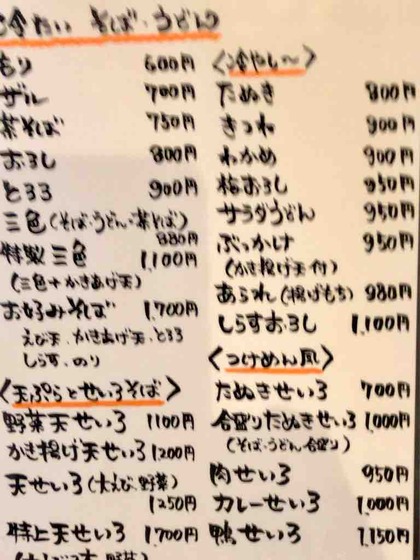 冷たい そば・うどん
もり 600円
ザル 700円
茶そば 750円
おろし 800円
とろろ 900円
三色(そば・うどん・茶そば)
880円
特製三色 1,100円
(三色+かきあげ天)
お好みそば 1,700円
えび天.かきあげ天.とろろ
しらす.のり
〈天ぷらとせいろそば〉
野菜天せいろ 1100円
かき揚げ天せいろ 1200円
天せいろ(大えび.野菜)
1250円
特上天せいろ 1700円
〈冷やし〜〉
たぬき 800円
きつね 900円
わかめ 900円
梅おろし 950円
サラダうどん 950円
ぶっかけ 950円
(かき揚げ天付)
あられ(揚げもち) 980円
しらすおろし 1,100円
〈つけめん風〉
たぬきせいろ 700円
合盛りたぬきせいろ 1,000円
(そば.うどん合盛り)
肉せいろ 950円
カレーせいろ 1,000円
鴨せいろ 1,150円